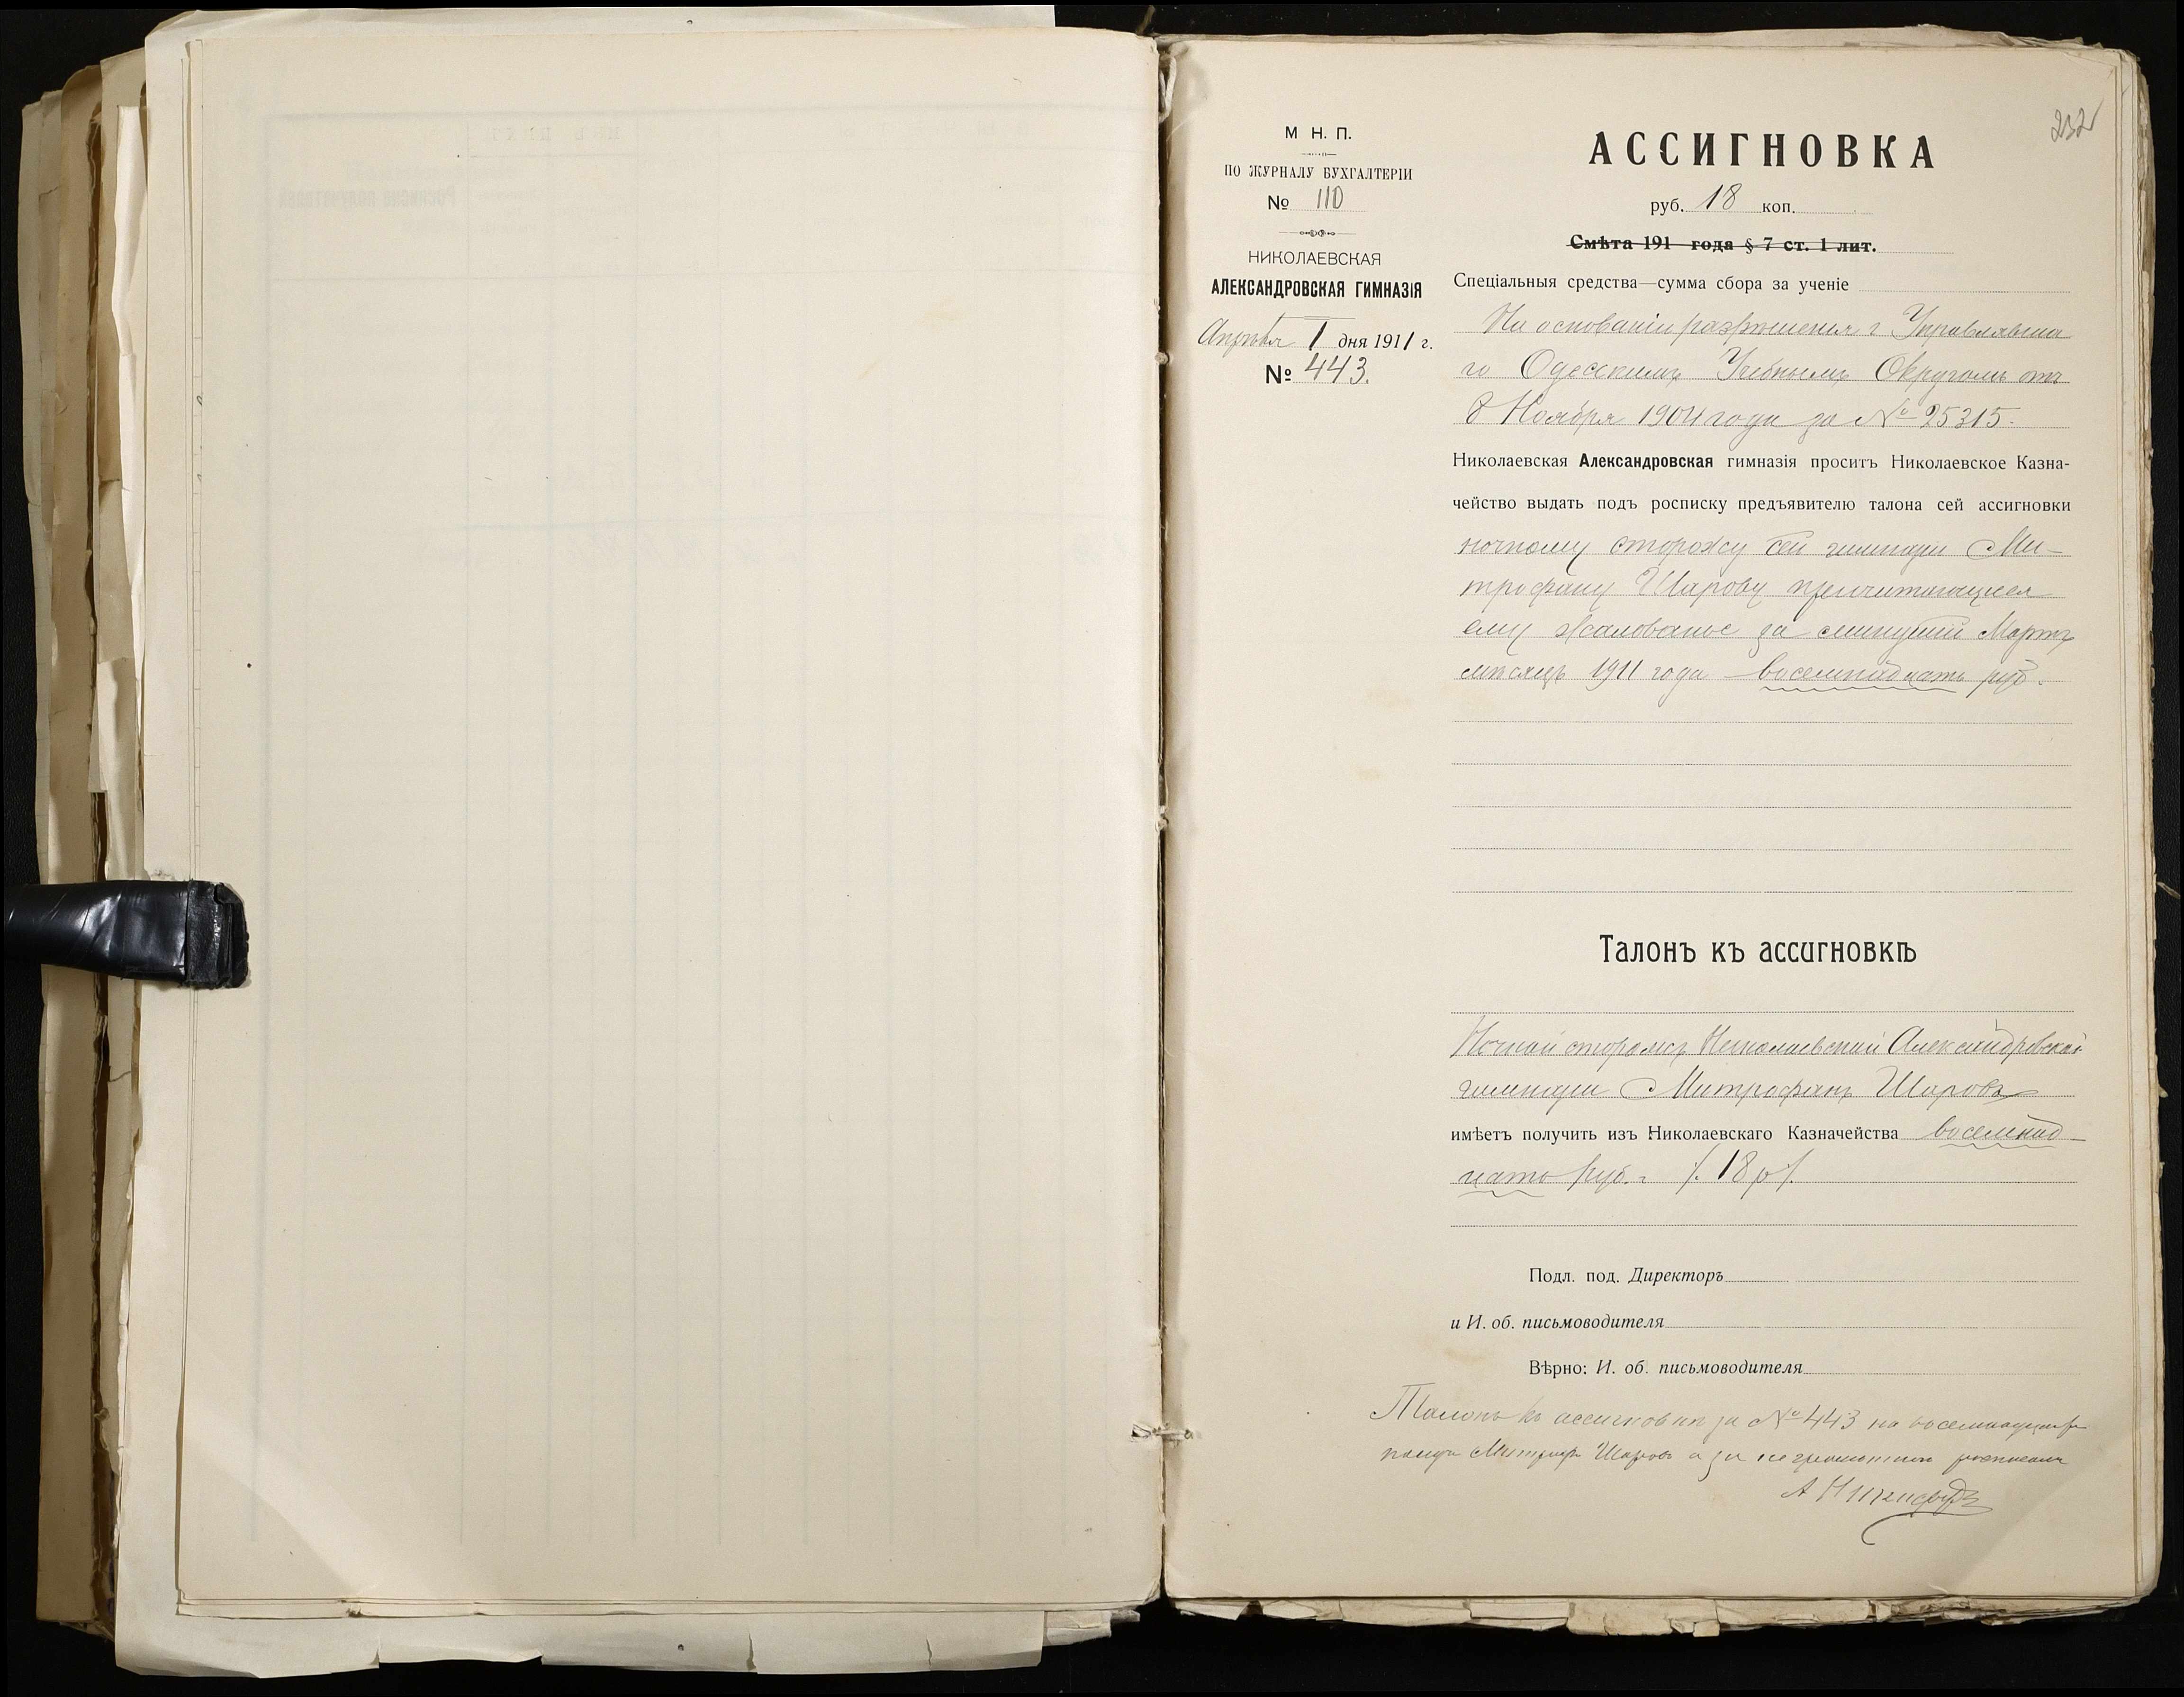 232
М Н. П.
ПО ЖУРНАЛУ БУХГАЛТЕРІИ
№ 110
НИКОЛАЕВСКАЯ
АЛЕКСАНДРОВСКАЯ ГИМНАЗІЯ
Апрѣля 1 дня 1911 г.
№ 443.
АССИГНОВКА
руб. 18 коп.
Смѣта 191 года § 7 ст. 1 лит.
Спеціальныя средства—сумма сбора за ученіе
На основаніи разрѣшенія г Управлявша
го Одесскимъ Учебнымъ Округомъ отъ
8 Ноября 1904 года за № 25315.
Николаевская Александровская гимназія проситъ Николаевское Казна-
чейство выдать подъ росписку предъявителю талона сей ассигновки
ночному сторожу сей гимназіи Ми-
трофану Шарову причитающееся
ему жалованье за минувшій Мартъ
мѣсяцъ 1911 года восемнадцать руб.
Талонъ къ ассигновкѣ
Ночной сторожъ Николаевской Александровской
гимназіи Митрофанъ Шаровъ
имѣетъ получить изъ Николаевскаго Казначейства восемнад
цать руб. /. 18 р /.
Подл. под. Директоръ
и И. об. письмоводителя
Вѣрно: И. об. письмоводителя
Талонъ къ ассигновкѣ за № 443 на восемнадцать
Шаровъ а за неграмотнаго